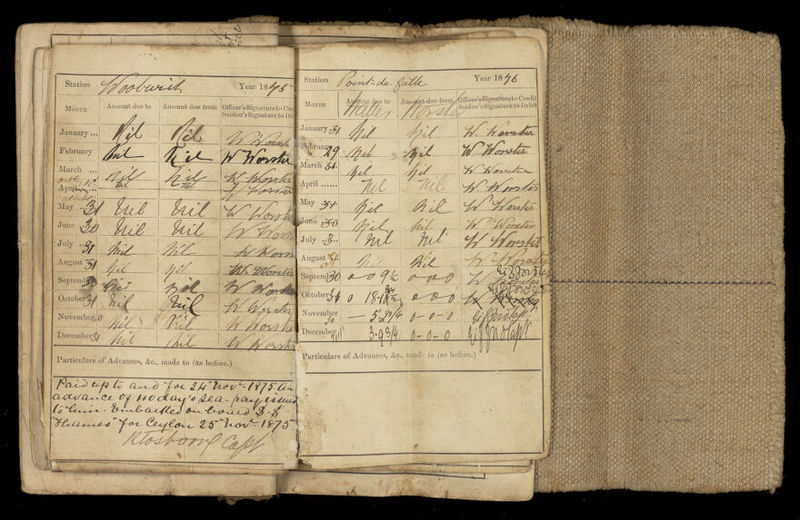 Station Woolwich Year 1875
MONTH Amount due to Amount due from Officer's Signature to Credit Soldier's Signature to Debit
January... Nil Nil W Worster
February Nil Nil W Worster
March ... Nil Nil W Worster
April Nil Nil W Worster
May 31 Nil Nil W Worster
June 30 Nil Nil W Worster
July 31 Nil Nil W Worster
August 31 Nil Nil W Worster
September Nil Nil W Worster
October 31 Nil Nil W Worster
November 30 Nil Nil W Worster
December 31 Nil Nil W Worster
Particulars of Advances, &c., made to (as before.)
Paid up to and for 24 Novr 1875 an
advance of 40 day's sea-pay issued
to him. Embarked on board S.S.
"Thames" for Ceylon 25 Novr 1875
Capt
Station Point-de-Galle Year 1876
MONTH Amount due to Amount due from Officer's Signature to Credit Soldier's Signature to Debit
Worster
January 31 Nil Nil W Worster
February 29 Nil Nil W Worster
March 31 Nil Nil W Worster
April ...... Nil Nil W Worster
May 31 Nil Nil W Worster
June 30 Nil Nil W Worster
July 3 Nil Nil W Worster
August Nil Nil W Worster
September 30 0-0 9½ 0-0-0 W
October 31 0 0-0-0
November 30 0-0-0
December 0-0-0 Capt
Particulars of Advances, &c., made to (as before.)